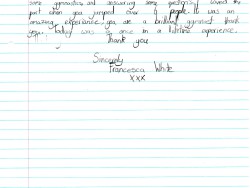 some gymnastics and answering some questions. I loved the
part when you jumped over 4 people. It was an
amazing experience. you are a brilliant gymnast thank
you. Today was a once in a lifetime experience.
Thank you
Sincerely
Francesca White
xxx